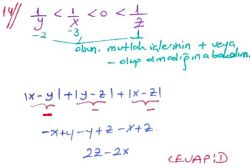 14/ 1/y < 1/x < 0 < 1/z
-2 -3 1
olun. mutlak içlerinin + veya
- olup olmadığına bakalım.
|x-y| + |y-z| + |x-z|
- - -
-x+y-y+z-x+z
2z-2x
CEVAP: D